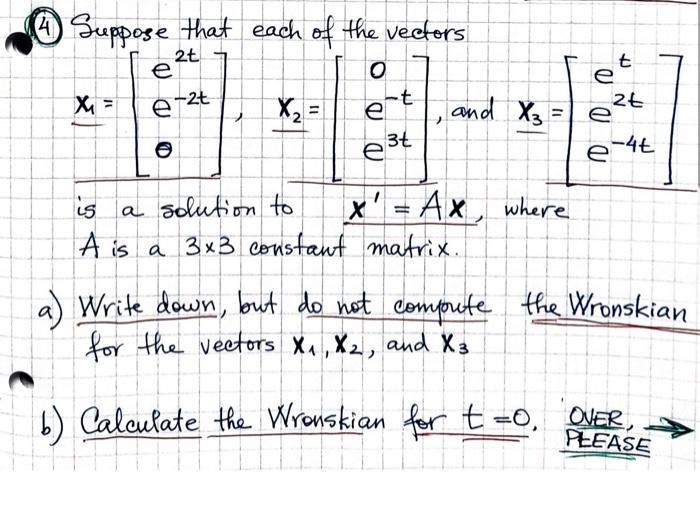 4 Suppose that each of the vectors
x₁ = [e^{2t}, e^{-2t}, 0], x₂ = [0, e^{-t}, e^{3t}], and x₃ = [e^{t}, e^{2t}, e^{-4t}]
is a solution to x' = Ax, where
A is a 3×3 constant matrix.
a) Write down, but do not compute the Wronskian
for the vectors x₁, x₂, and x₃
b) Calculate the Wronskian for t=0. OVER, →
PLEASE